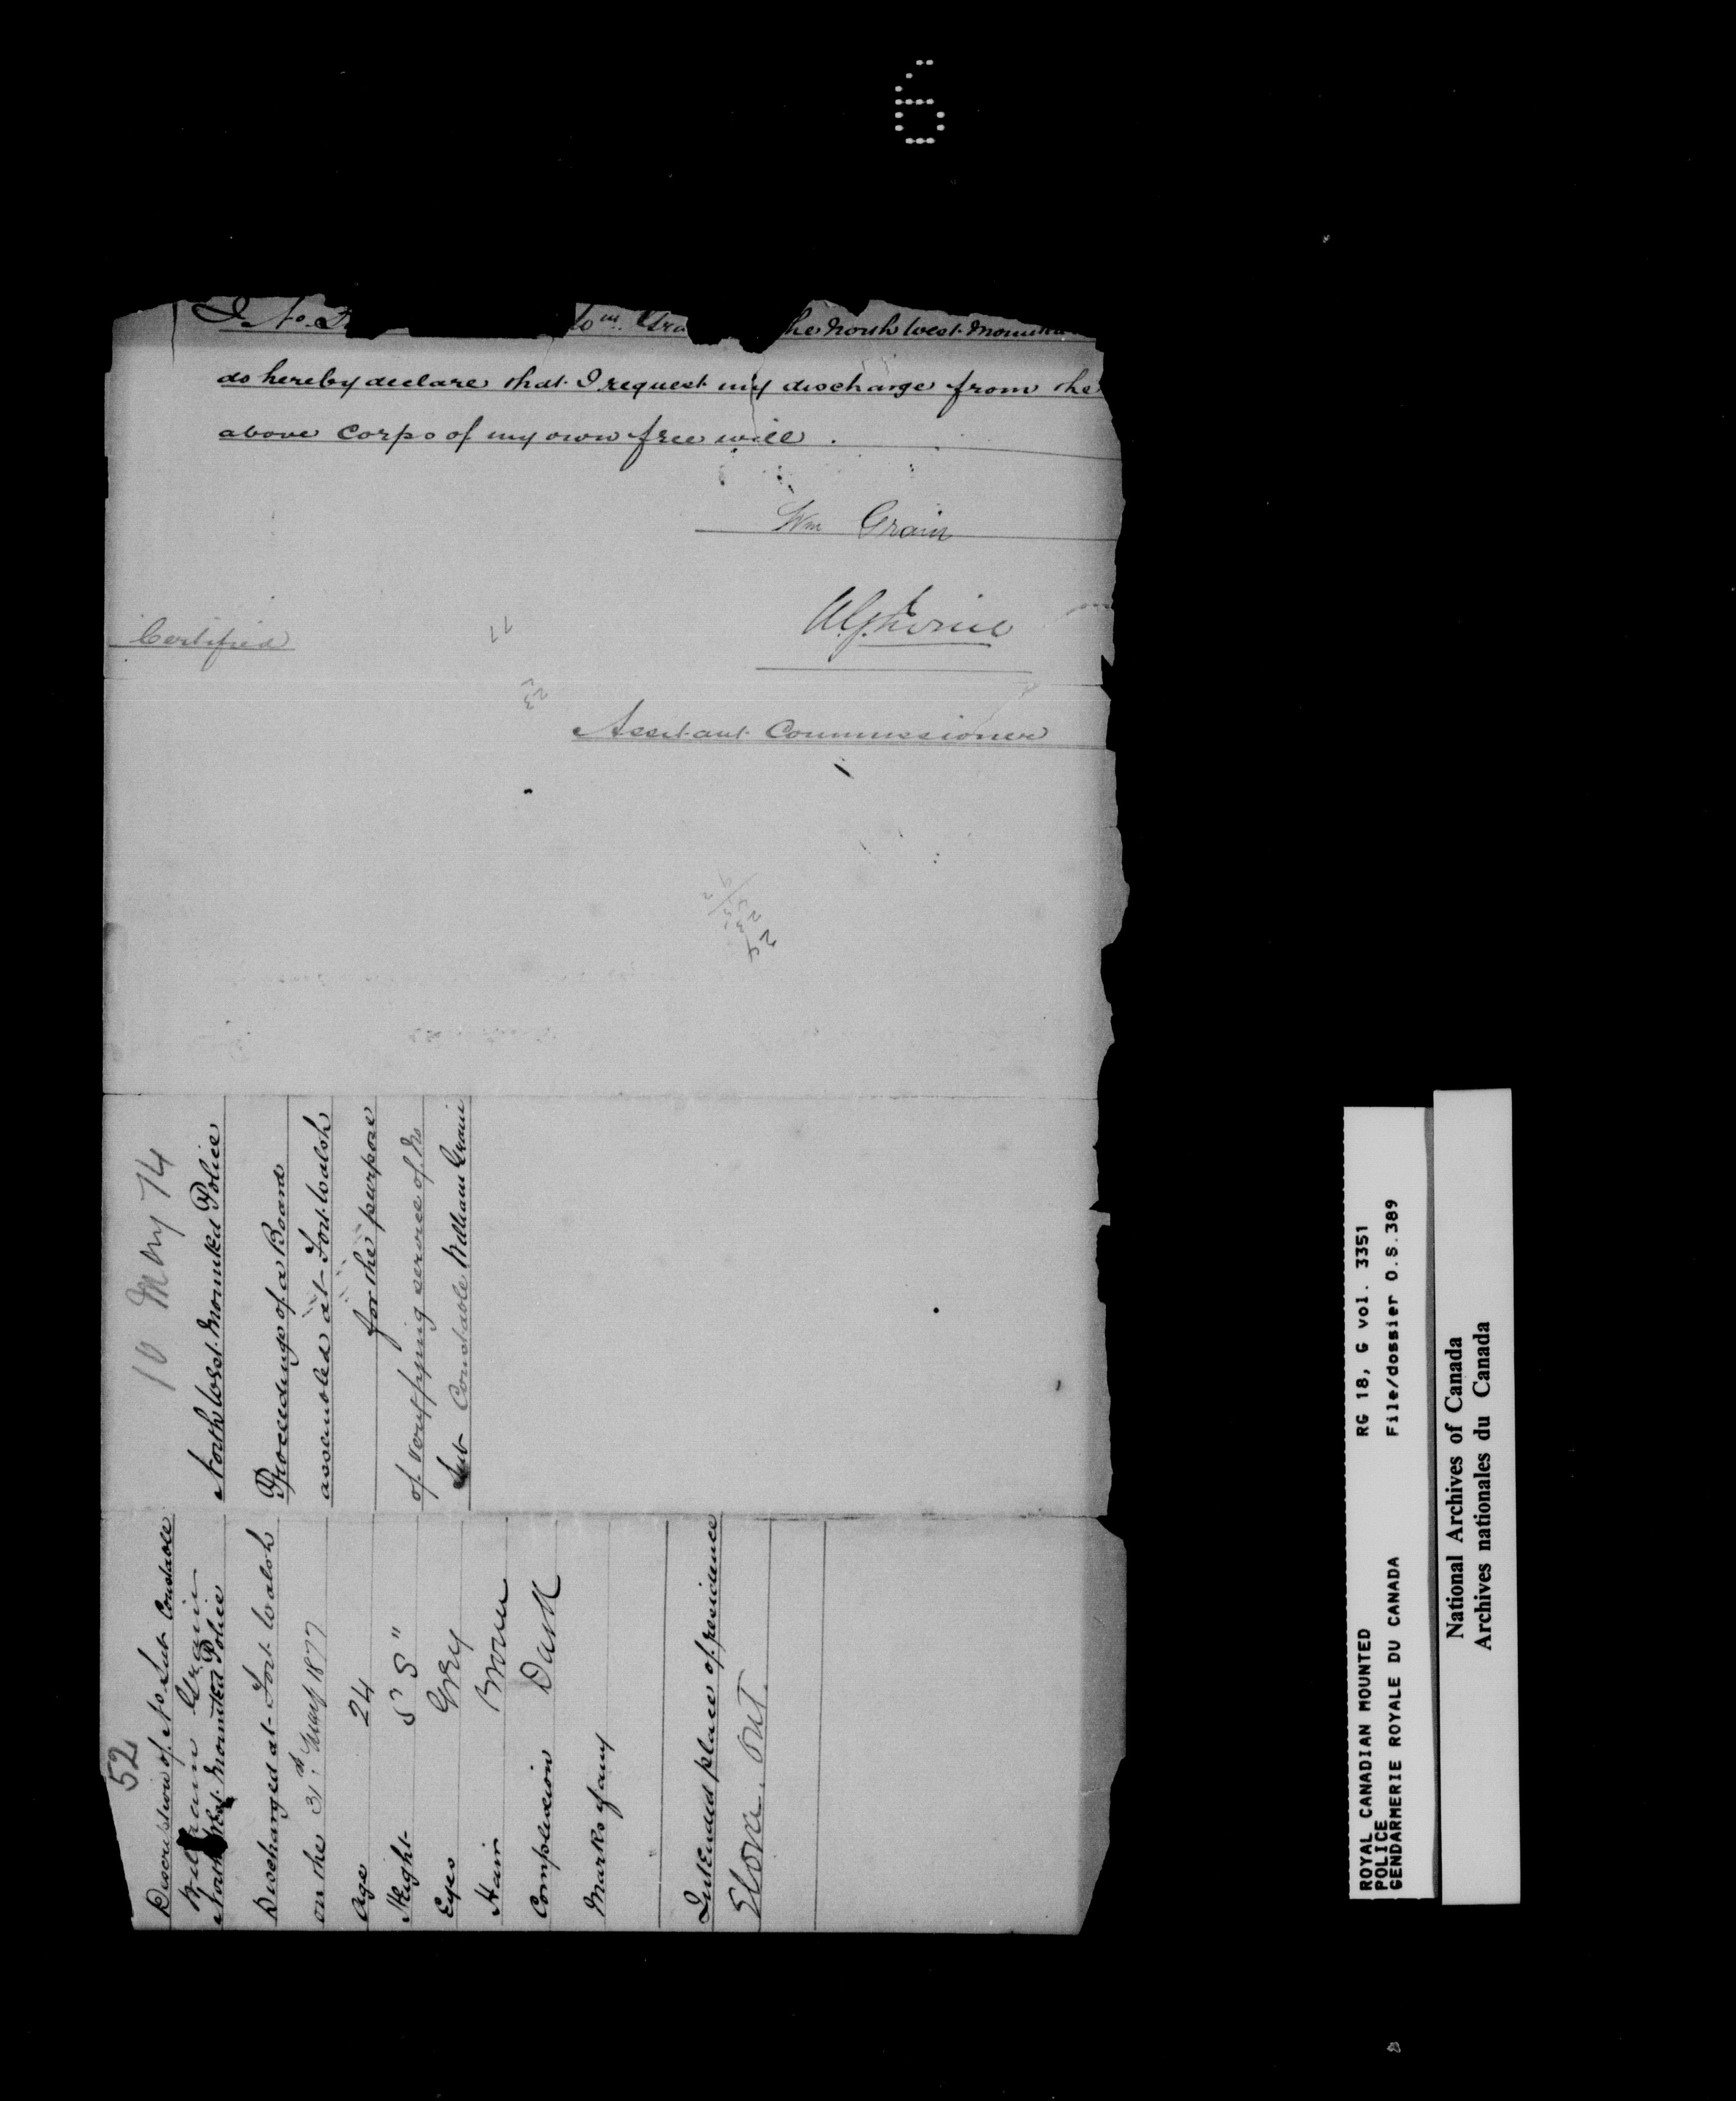 6
I No. Wm. Gra he North West Mounted
do hereby declare that I request my discharge from the
above Corps of my own free will.
Wm Grain
Certified
A.G. Irvine
Assistant Commissioner
77
23
10 May 74
North West Mounted Police
Proceedings of a Board
assembled at Fort Walsh
for the purpose
of verifying service of No
Sub Constable William Grain
52
Description of No Sub Constable
William Grain
North West Mounted Police
Discharged at Fort Walsh
on the 31st May 1877
Age 24
Height 5 5"
Eyes Grey
Hair Brown
Complexion Dark
Marks if any
Intended place of residence
Elora. Ont.
ROYAL CANADIAN MOUNTED RG 18, G vol. 3351
POLICE File/dossier O.S.389
GENDARMERIE ROYALE DU CANADA
National Archives of Canada
Archives nationales du Canada